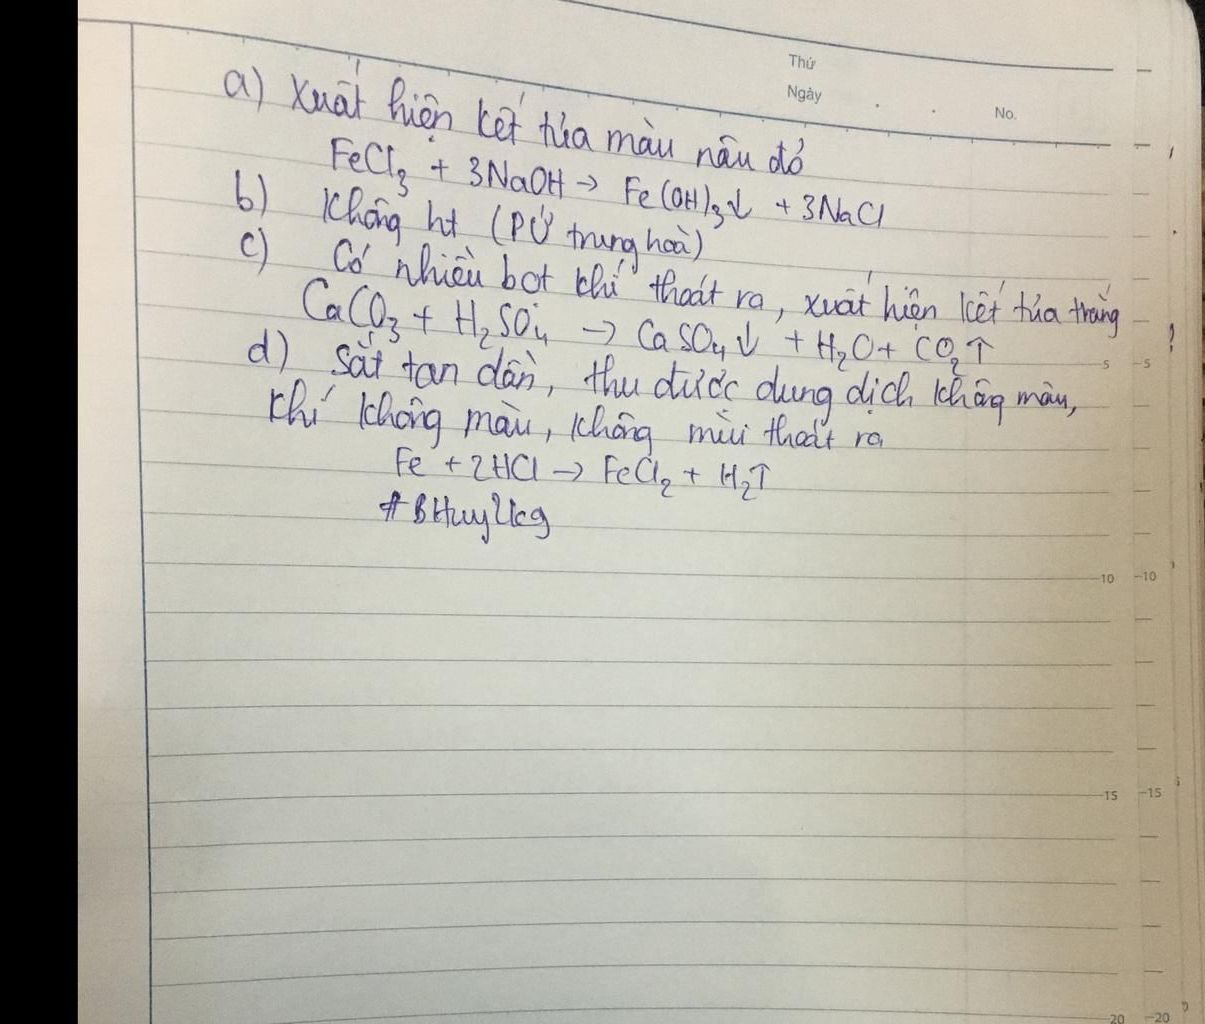 Thứ
Ngày
No.
a) Xuất hiện kết tủa màu nâu đỏ
FeCl₃ + 3NaOH → Fe(OH)₃↓ + 3NaCl
b) Không ht (PỨ trung hoà)
c) Có nhiều bọt khí thoát ra, xuất hiện kết tủa trắng
CaCO₃ + H₂SO₄ → CaSO₄↓ + H₂O + CO₂↑
d) Sắt tan dần, thu được dung dịch không màu,
khí không màu, không mùi thoát ra
Fe + 2HCl → FeCl₂ + H₂↑
#BHuy2kg
5 5
10 10
15 15
20 20